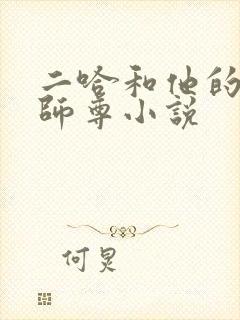 二哈和他的
師尊小説
何炅